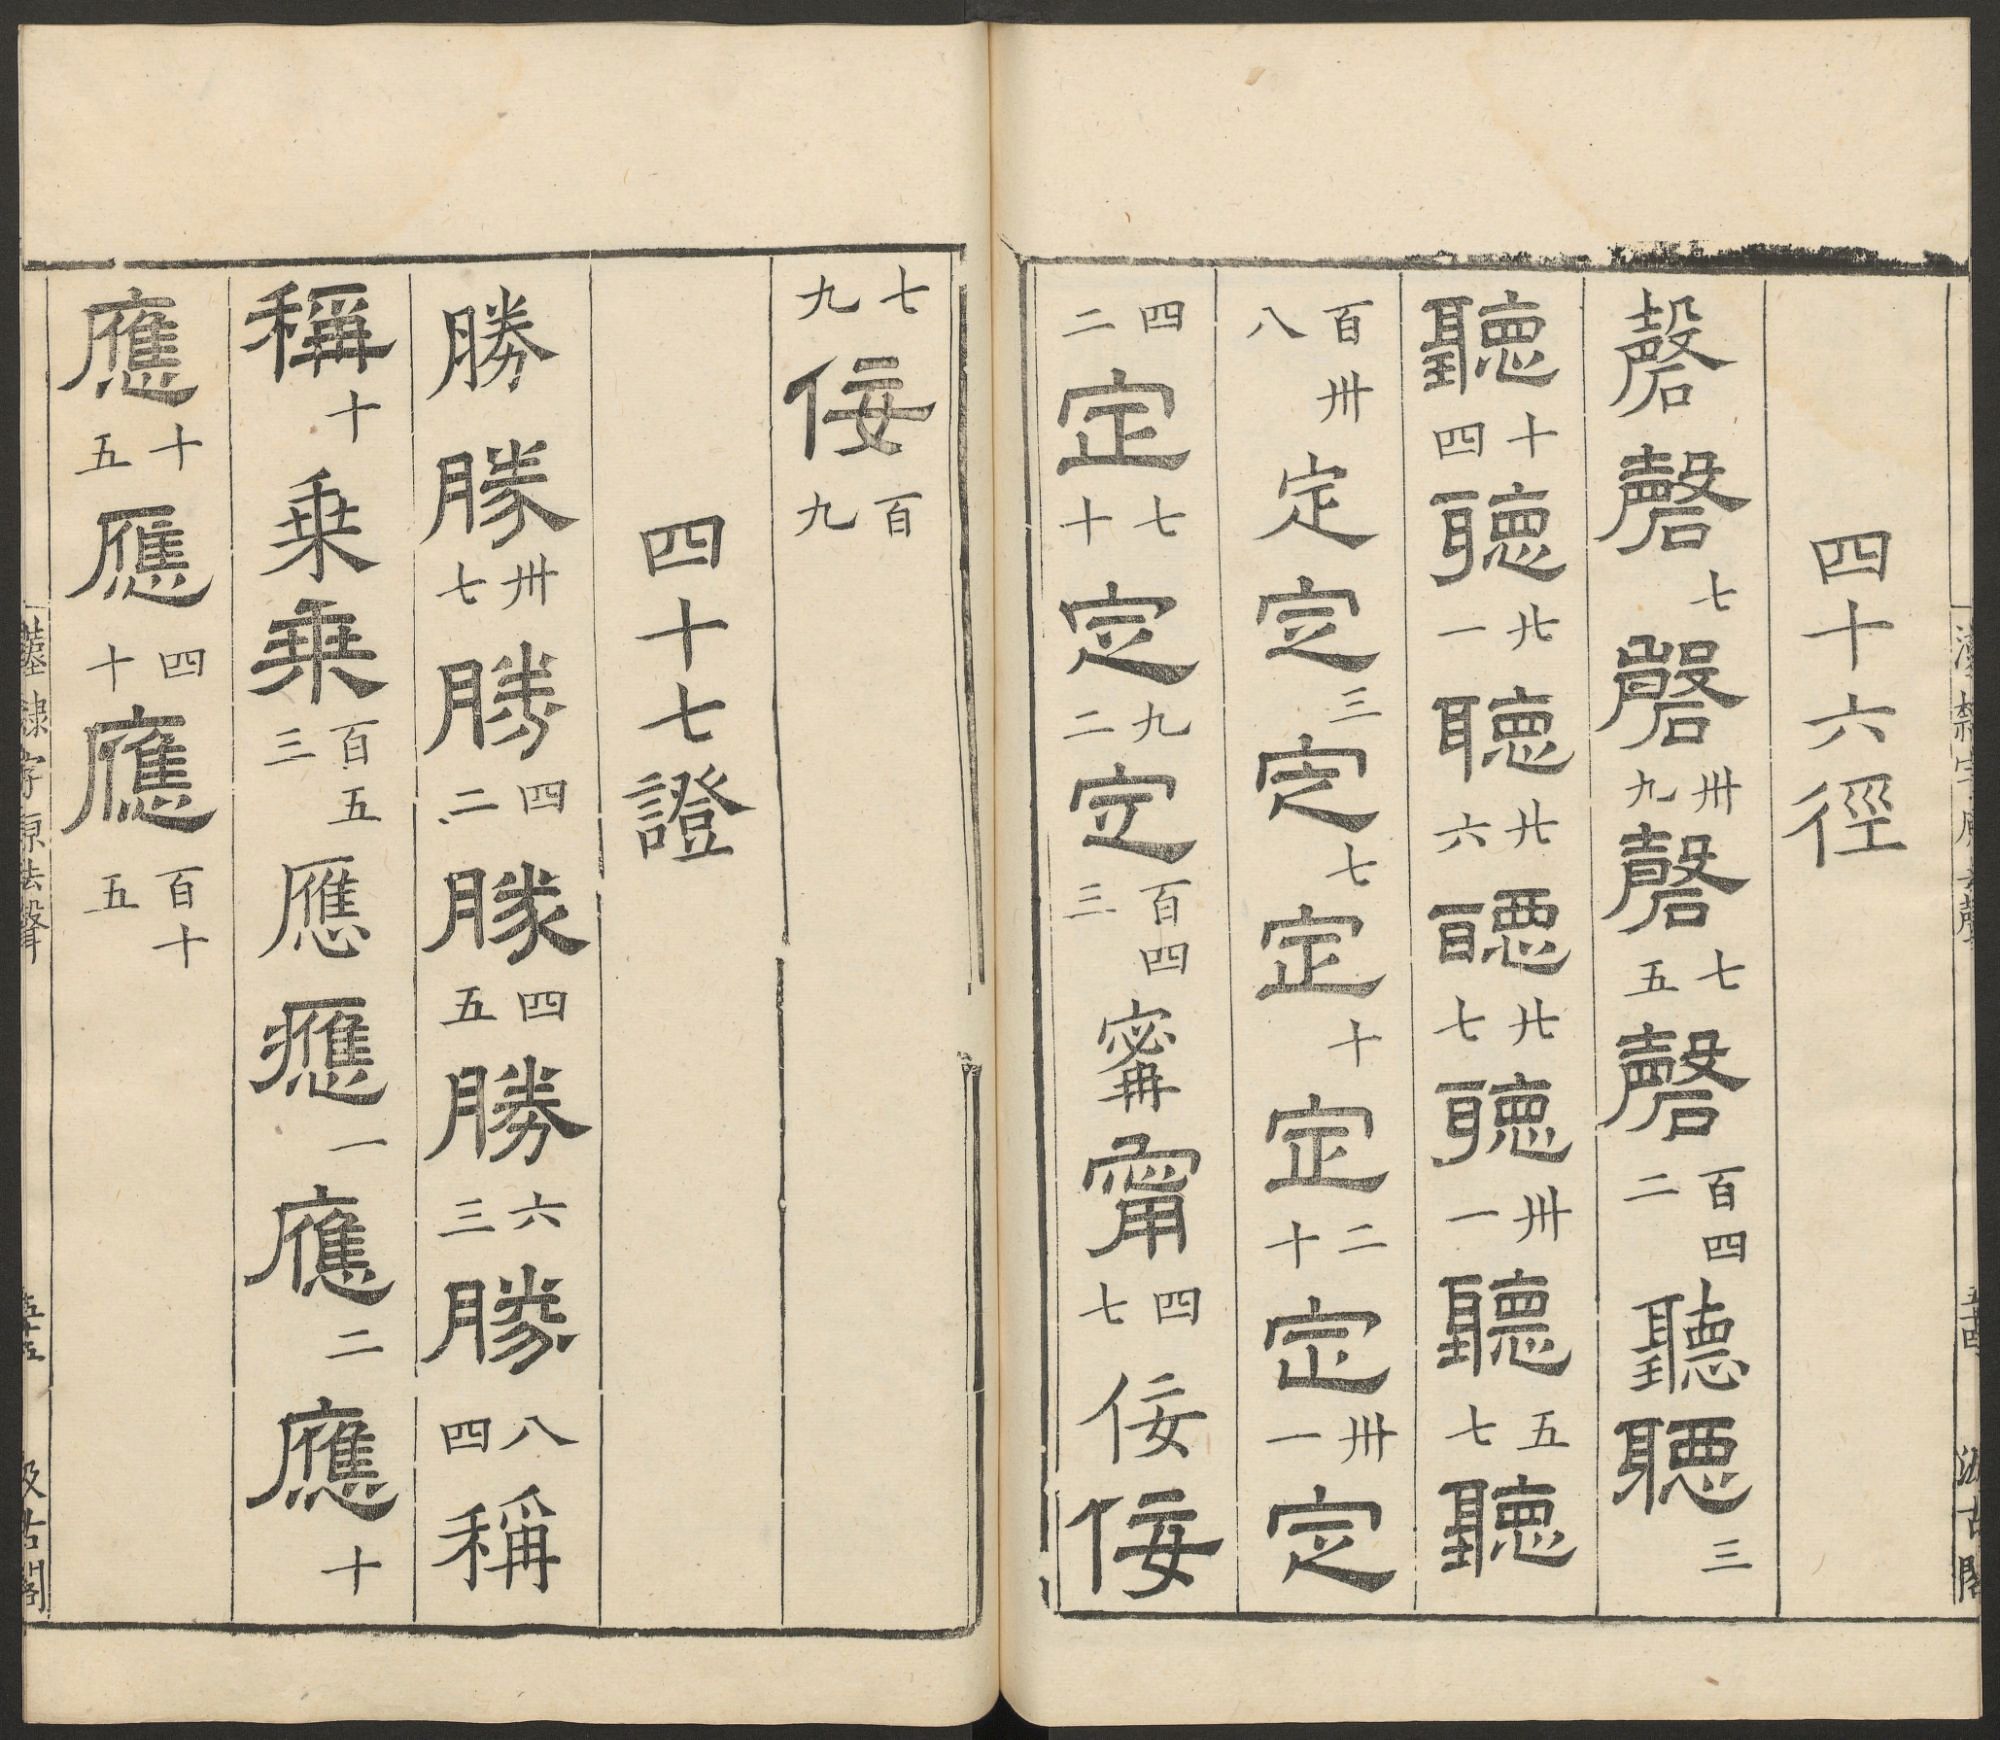 四十六徑
磬磬七磬卅九磬七五磬百四二聽聽三
聽十四聽廿一聽廿六聽廿七聽卅一聽五七聽
百卅八定定三定七定十定二十定卅一定
四二定七十定九二定百四三寗甯四七佞佞
七九佞百九
四十七證
勝勝卅七勝四二勝四五勝六三勝八四稱
稱十乗乗百五三應應一應二應十
應十五應四十應百十五
漢隸字原去聲 汲古閣